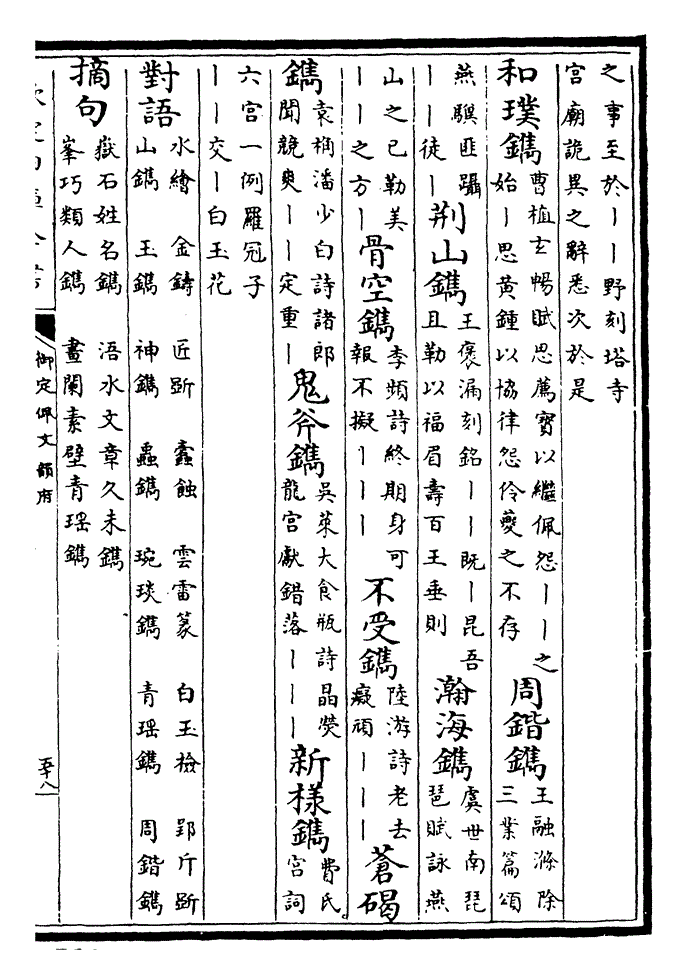 之事至於丨丨野刻塔寺
宫廟詭異之辭悉次於是
和璞鐫曹植玄暢賦思薦寳以繼佩怨丨丨之
始丨思黄鍾以協律怨伶夔之不存
周鍇鐫王融滌除
三業篇頌
燕騏匪躡
丨丨徒丨
荆山鐫王褒漏刻銘丨丨既丨昆吾
且勒以福眉壽百王垂則
瀚海鐫虞世南琵
琶賦詠燕
山之已勒美
丨丨之方丨
骨空鐫李頻詩終期身可
報不擬丨丨丨
不受鐫陸游詩老去
癡頑丨丨丨
蒼碣
鐫袁桷潘少白詩諸郎
聞競爽丨丨定重丨
鬼斧鐫吳萊大食瓶詩晶熒
龍宫獻錯落丨丨丨
新様鐫費氏
宫詞
六宫一例羅冠子
丨丨交丨白玉花
對語
水繪 金鑄 匠斵 蠹蝕 雲雷篆 白玉檢 郢斤斵
山鐫 玉鐫 神鐫 蟲鐫 琬琰鐫 青瑶鐫 周鍇鐫
摘句
嶽石姓名鐫 浯水文章久未鐫
峯巧類人鐫 畫闌素壁青瑶鐫
御定佩文韻府
五十八